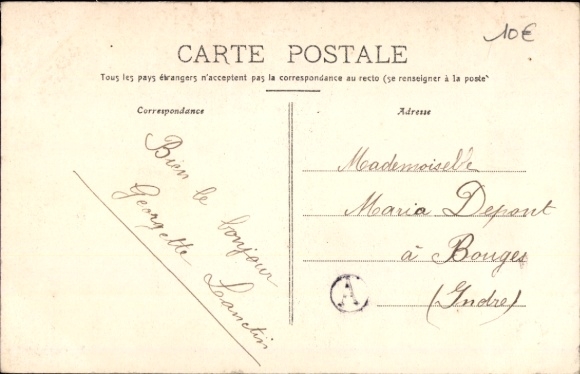 10€
CARTE POSTALE
Tous les pays étrangers n'acceptent pas la correspondance au recto (se renseigner à la poste)
Correspondance
Adresse
Bien le bonjour
Georgette Lanctin
Mademoiselle
Maria Depont
à Bouges
(Indre)
A